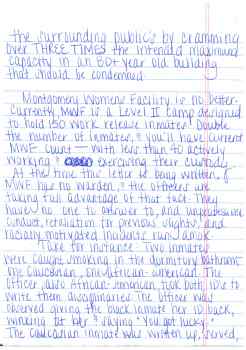 the surrounding publics by cramming
over THREE TIMES the intended maximum
capacity in an 80+ year old building
that should be condemned.
Montgomery Womens Facility is no better-
Currently MWF is a Level II Camp designed
to hold 150 work release inmates. Double
the number of inmates, & you'll have current
MWF count — with less than 40 actively
working & exercising their custody.
At the time this letter is being written,
MWF has no warden, & the officers are
taking full advantage of that fact. They
have no one to answer to, and unprofessional
conduct, retaliation for previous slights, and
racially motivated incidents run amok.
Take for instance: Two inmates
were caught smoking in the dormitory bathroom-
one Caucasian, one African-american. The
officer, also African-American, took both ID's to
write them disciplinaries. The officer was
observed giving the black inmate her ID back,
winking at her & saying "You got lucky."
The Caucasian inmate was written up, served,